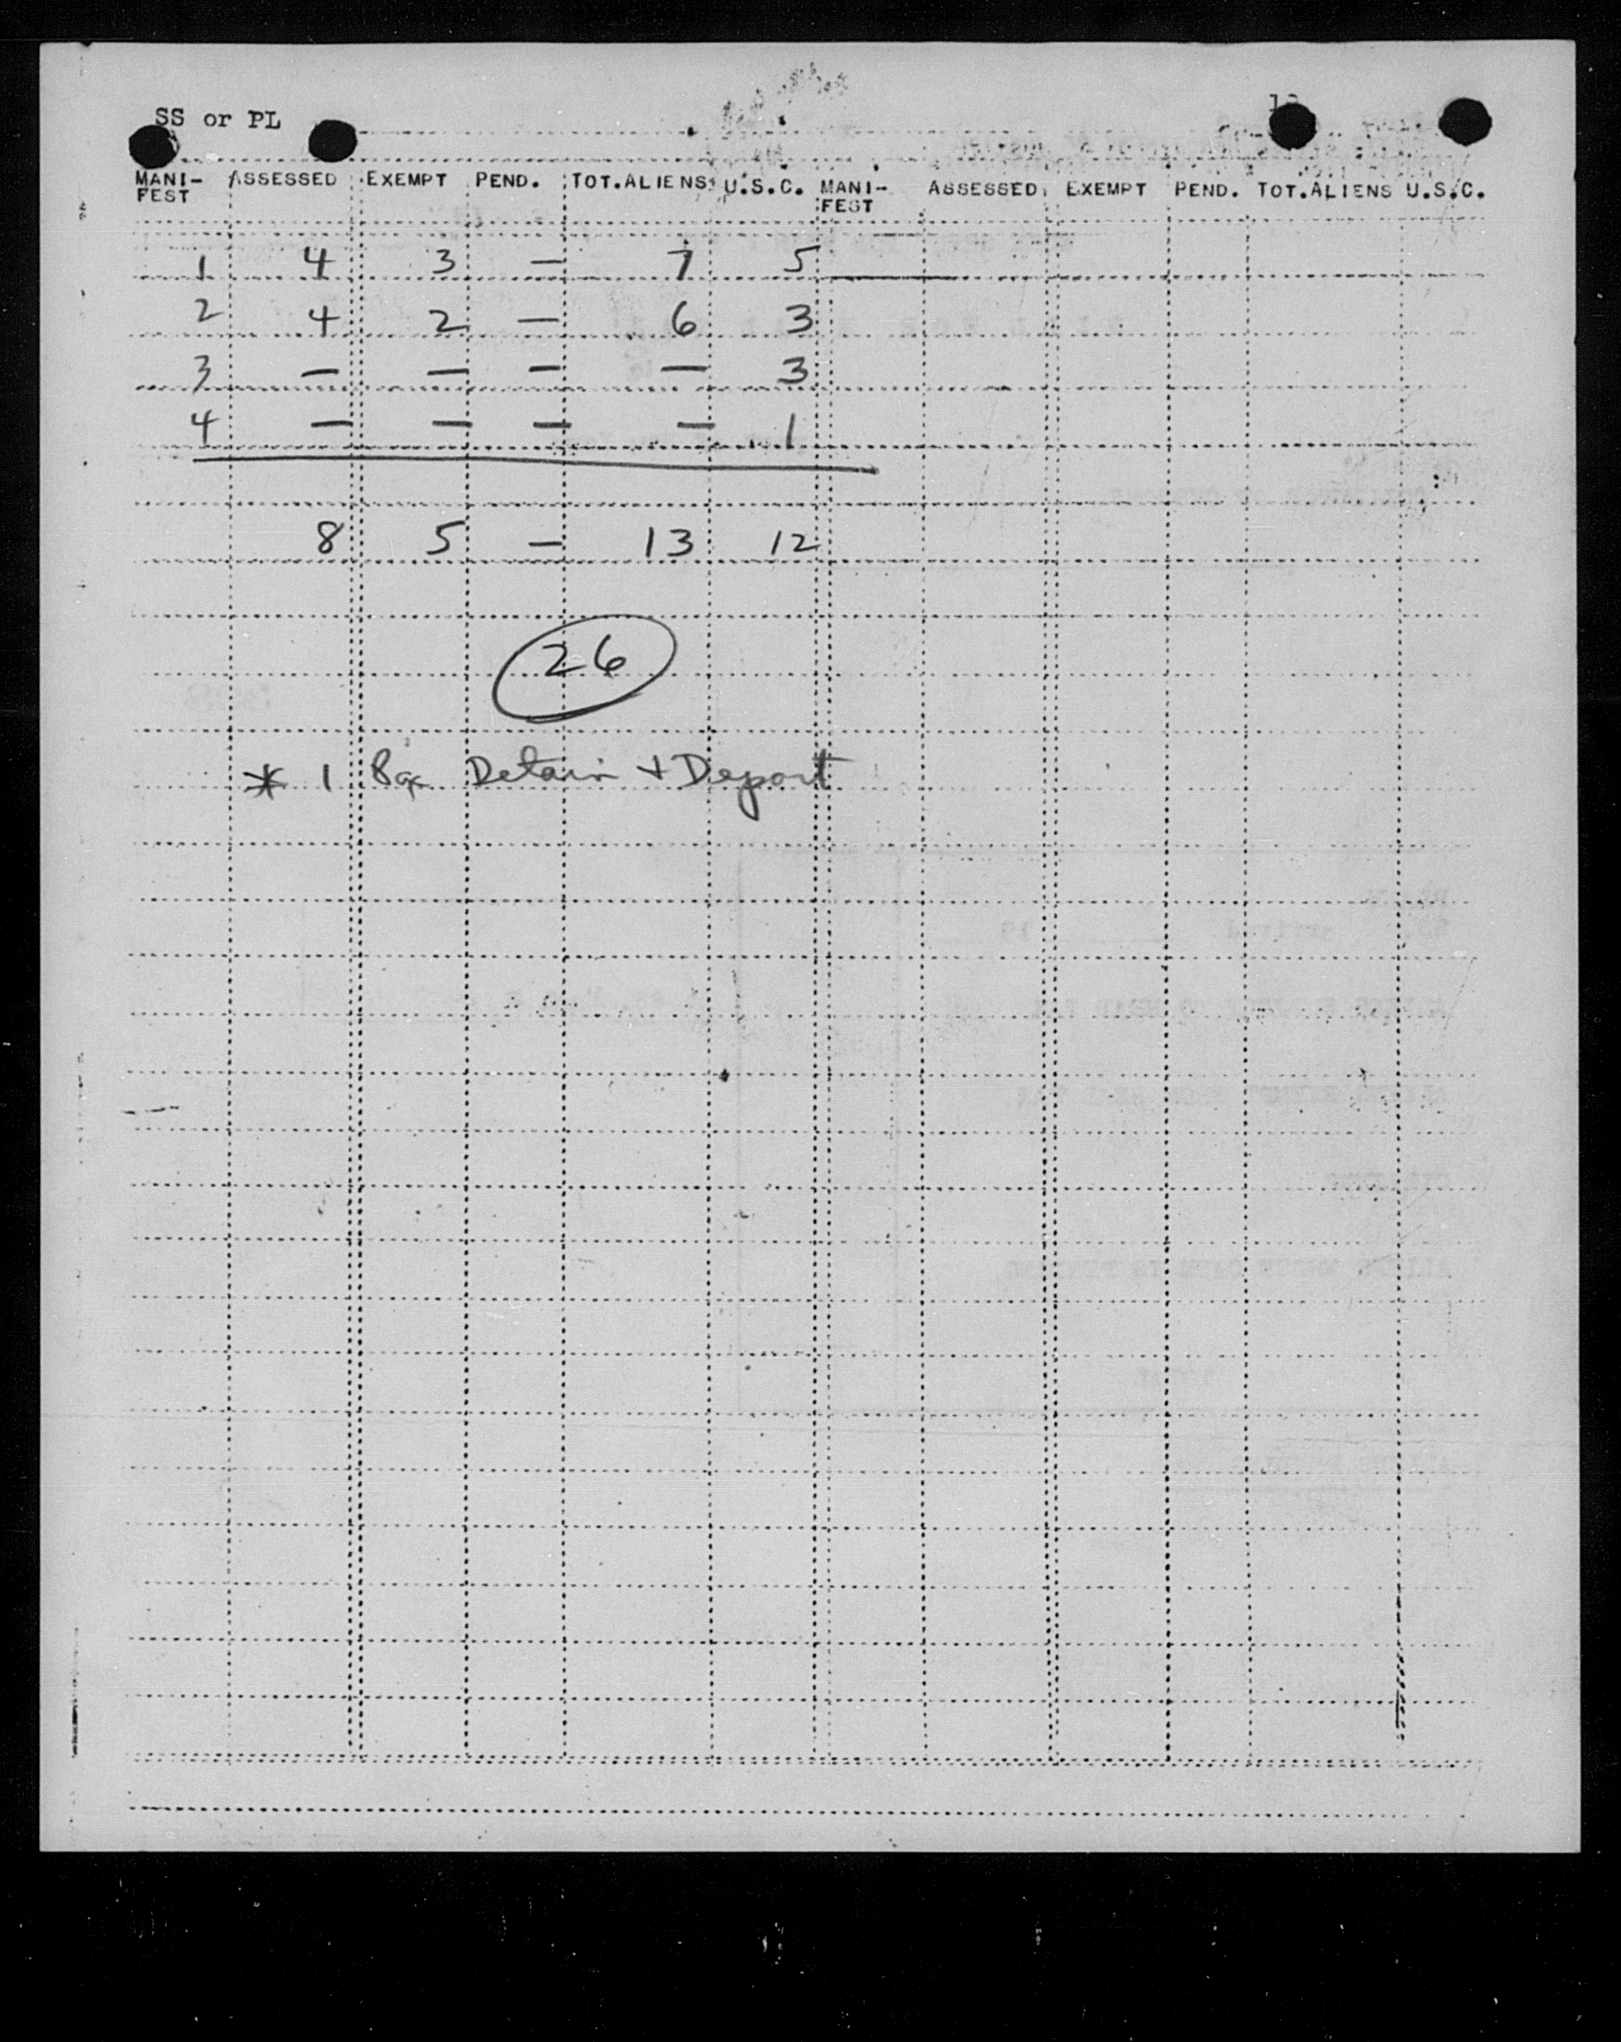 SS or PL
MANI- ASSESSED EXEMPT PEND. TOT.ALIENS U.S.C. MANI- ASSESSED EXEMPT PEND. TOT.ALIENS U.S.C.
FEST FEST
1 4 3 — 7 5
2 4 2 — 6 3
3 — — — — 3
4 — — — — 1
8 5 — 13 12
26
* 1 Detain + Deport